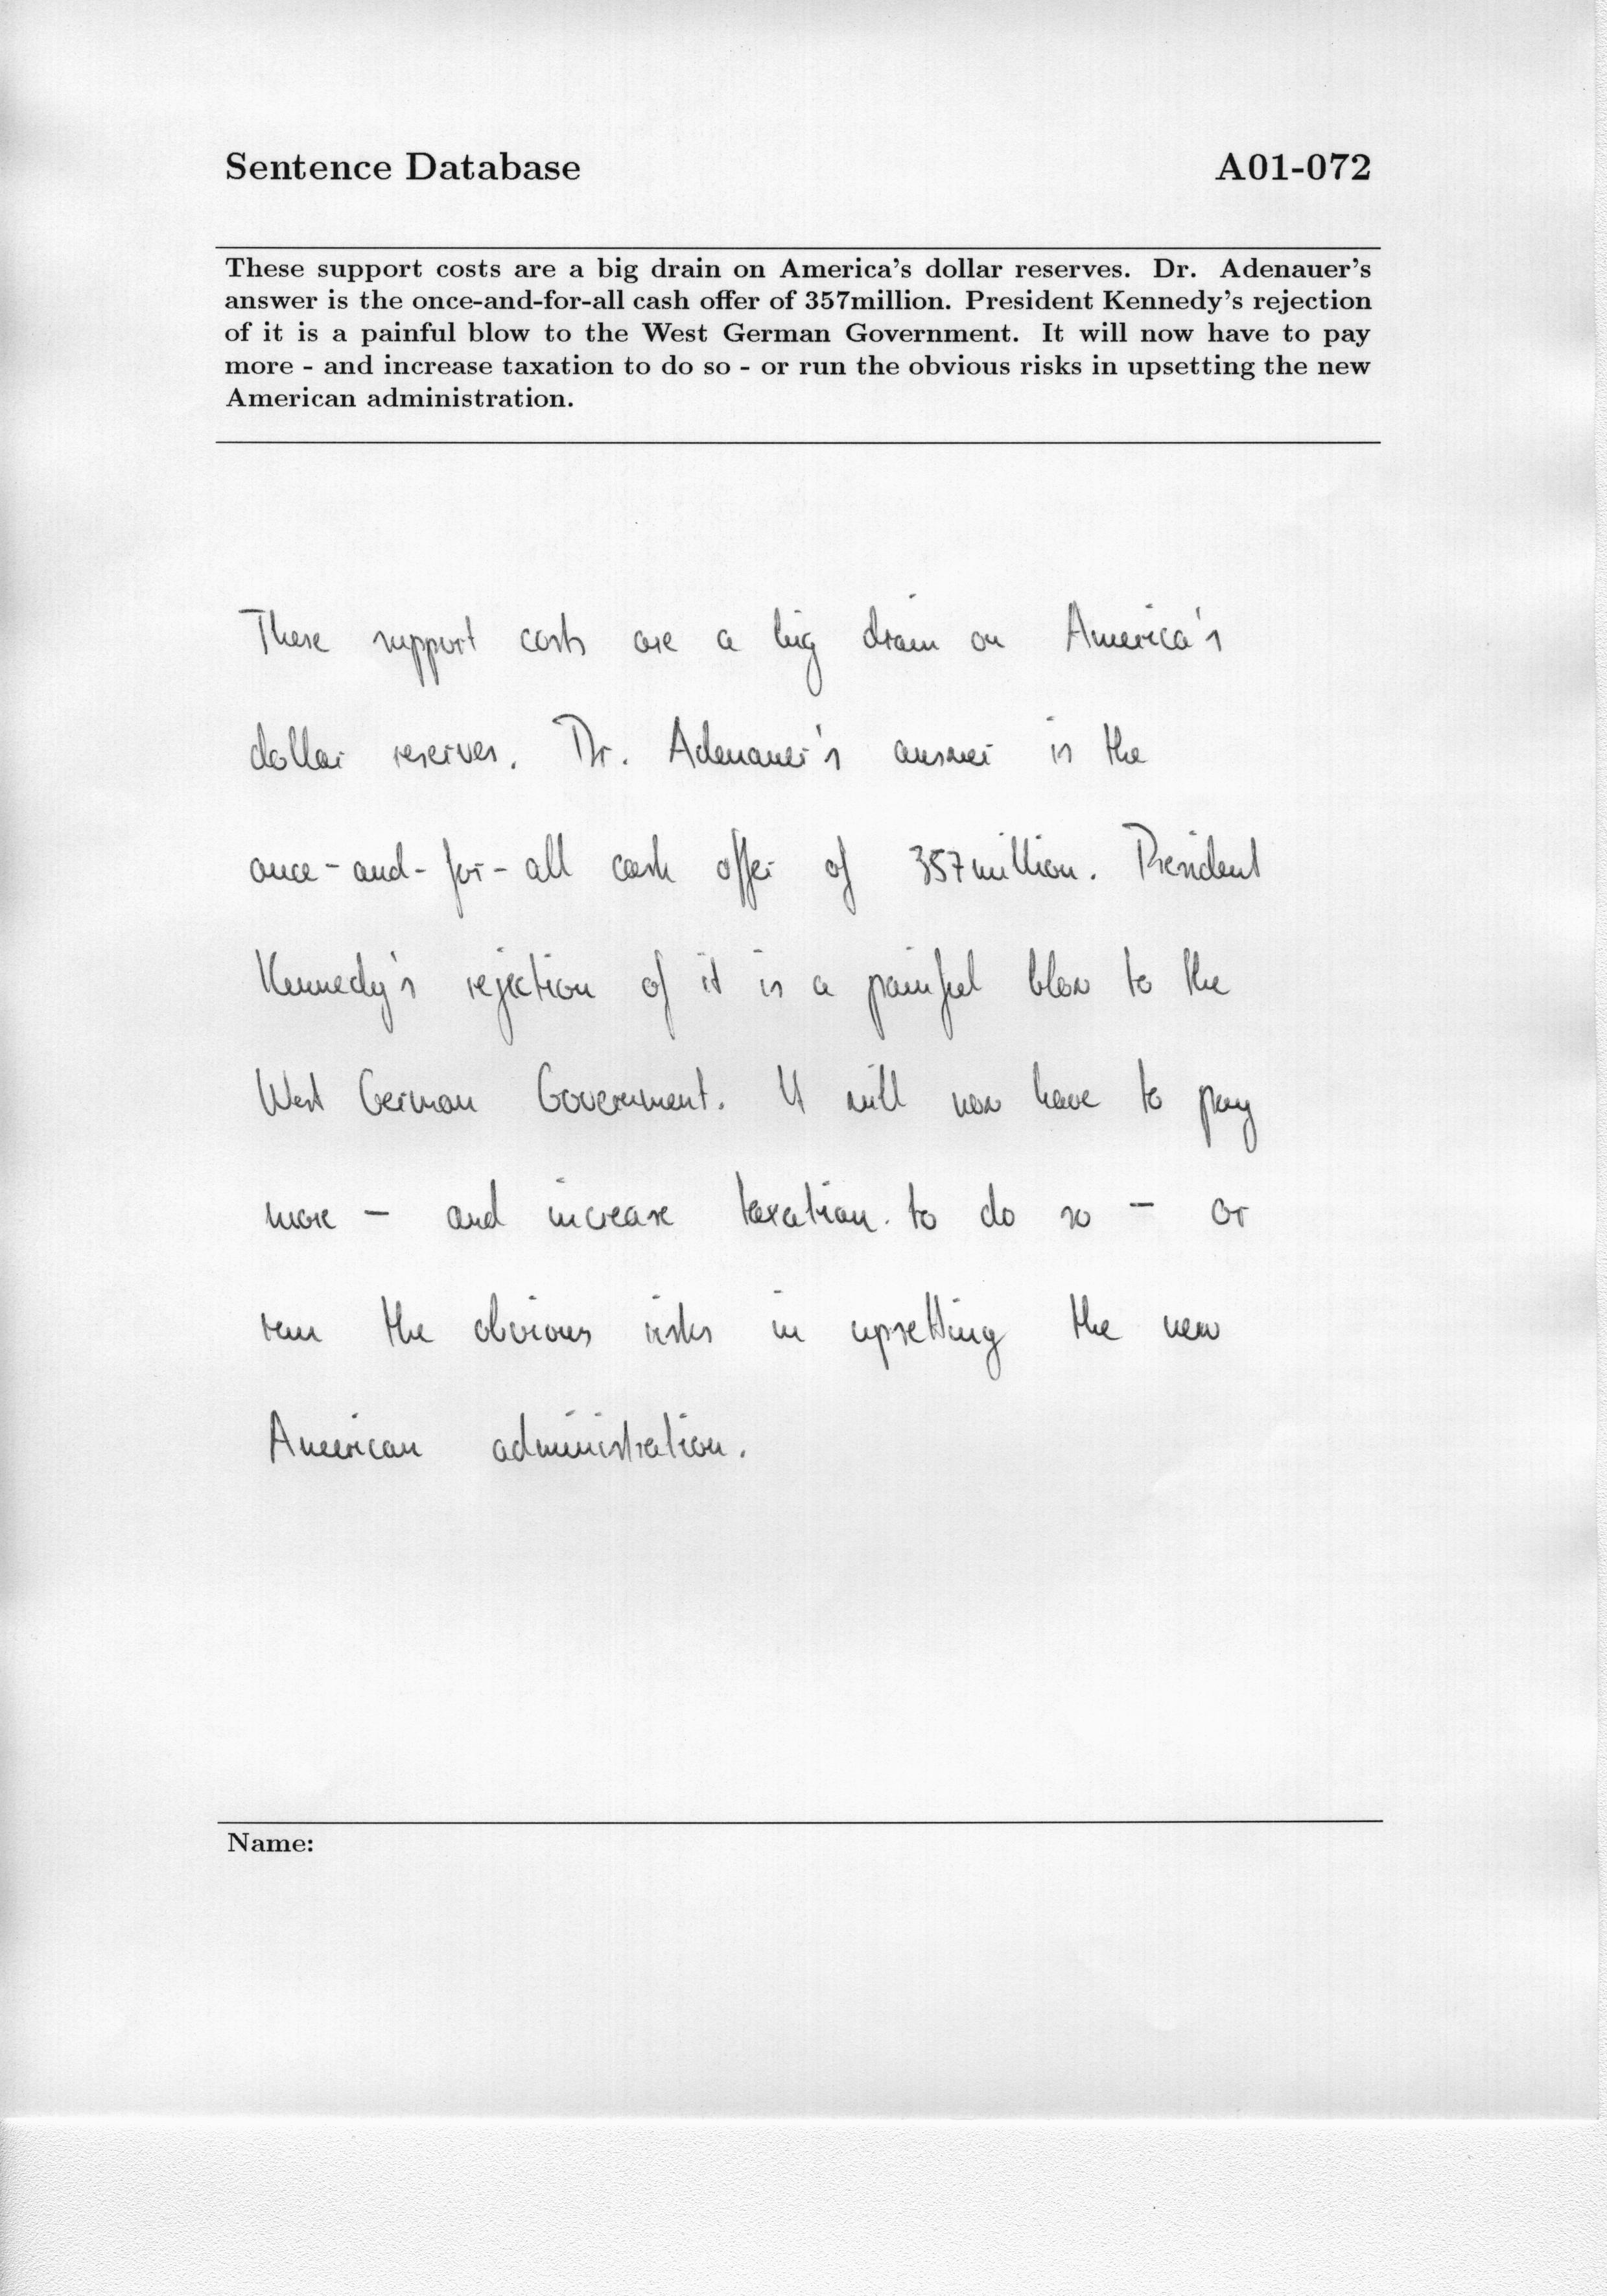 Sentence Database A01-072
These support costs are a big drain on America's dollar reserves. Dr. Adenauer's
answer is the once-and-for-all cash offer of 357million. President Kennedy's rejection
of it is a painful blow to the West German Government. It will now have to pay
more - and increase taxation to do so - or run the obvious risks in upsetting the new
American administration.
These support costs are a big drain on America's
dollar reserves. Dr. Adenauer's answer is the
once-and-for-all cash offer of 357million. President
Kennedy's rejection of it is a painful blow to the
West German Government. It will now have to pay
more - and increase taxation to do so - or
run the obvious risks in upsetting the new
American administration.
Name: